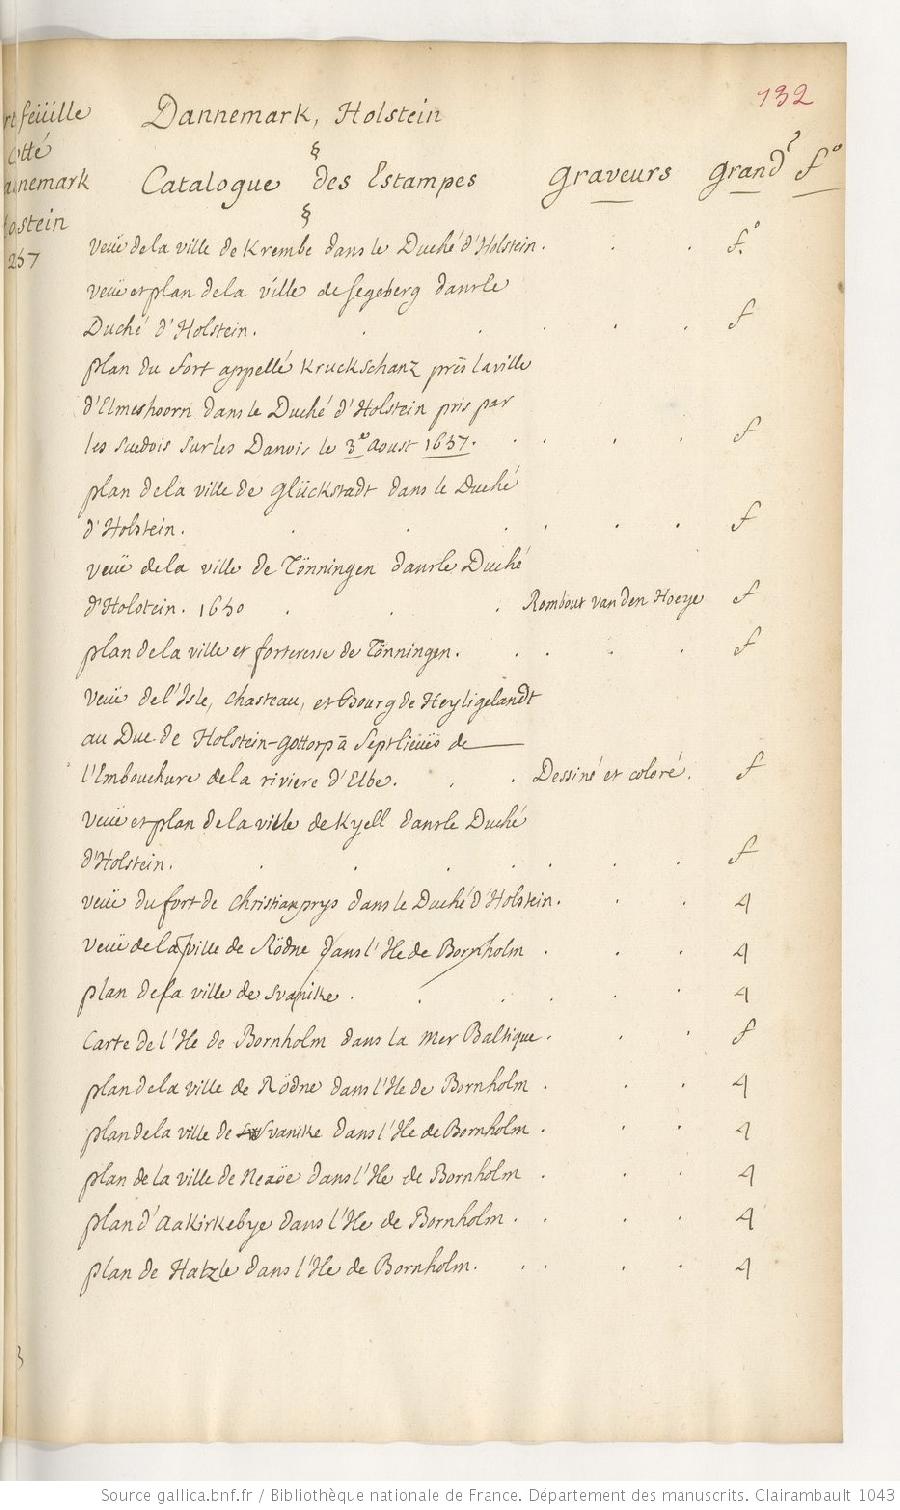 132
feüille
Dannemark, Holstein
cotté
§
nemark
Catalogue des Estampes Graveurs Grandr fo
ostein
§
257
veüe de la ville de Krembe dans le Duché d'Holstein. fo
veüe et plan de la ville de Segeberg dans le
Duché d'Holstein. f
plan du fort appellé Kruckschanz près la ville
d'Elmshoorn dans le Duché d'Holstein pris par
les Suedois sur les Danois le 3e aoust 1657. f
plan de la ville de Glückstadt dans le Duché
d'Holstein. f
veüe de la ville de Tönningen dans le Duché
d'Holstein. 1650 Rombout van den Hoeye f
plan de la ville et forteresse de Tönningen. f
veüe de l'Isle, chasteau, et Bourg de Heyligelandt
au Duc de Holstein-gottorp à Sept lieües de
l'Embouchure de la riviere d'Elbe. Dessiné et coloré. f
veüe et plan de la ville de Kyell dans le Duché
d'Holstein. f
veüe du fort de Christianprys dans le Duché d'Holstein. 4
veüe de la ville de Rödne dans l'Ile de Bornholm 4
plan de la ville de Svanike. 4
Carte de l'Ile de Bornholm dans la Mer Baltique. f
plan de la ville de Rödne dans l'Ile de Bornholm 4
plan de la ville de Svanike dans l'Ile de Bornholm. 4
plan de la ville de Neaöe dans l'Ile de Bornholm 4
plan d'Aakirkebye dans l'Ile de Bornholm. 4
plan de Hatzle dans l'Ile de Bornholm. 4
Source gallica.bnf.fr / Bibliothèque nationale de France. Département des manuscrits. Clairambault 1043